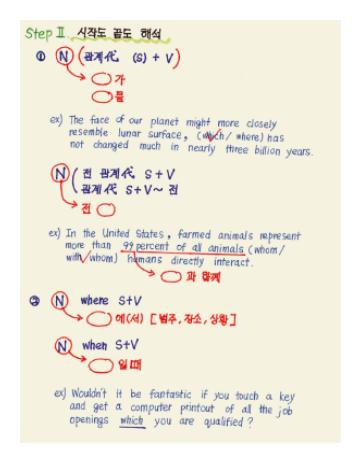 Step Ⅱ. 시작도 끝도 해석
① N (관계代 (S) + V)
가
를
ex) The face of our planet might more closely
resemble lunar surface, (which / where) has
not changed much in nearly three billion years.
N 전 관계代 S+V
관계代 S+V~ 전
전
ex) In the United States, farmed animals represent
more than 99 percent of all animals (whom /
with whom) humans directly interact.
과 함께
② N where S+V
에(서) [범주, 장소, 상황]
N when S+V
일 때
ex) Wouldn't it be fantastic if you touch a key
and get a computer printout of all the job
openings which you are qualified?